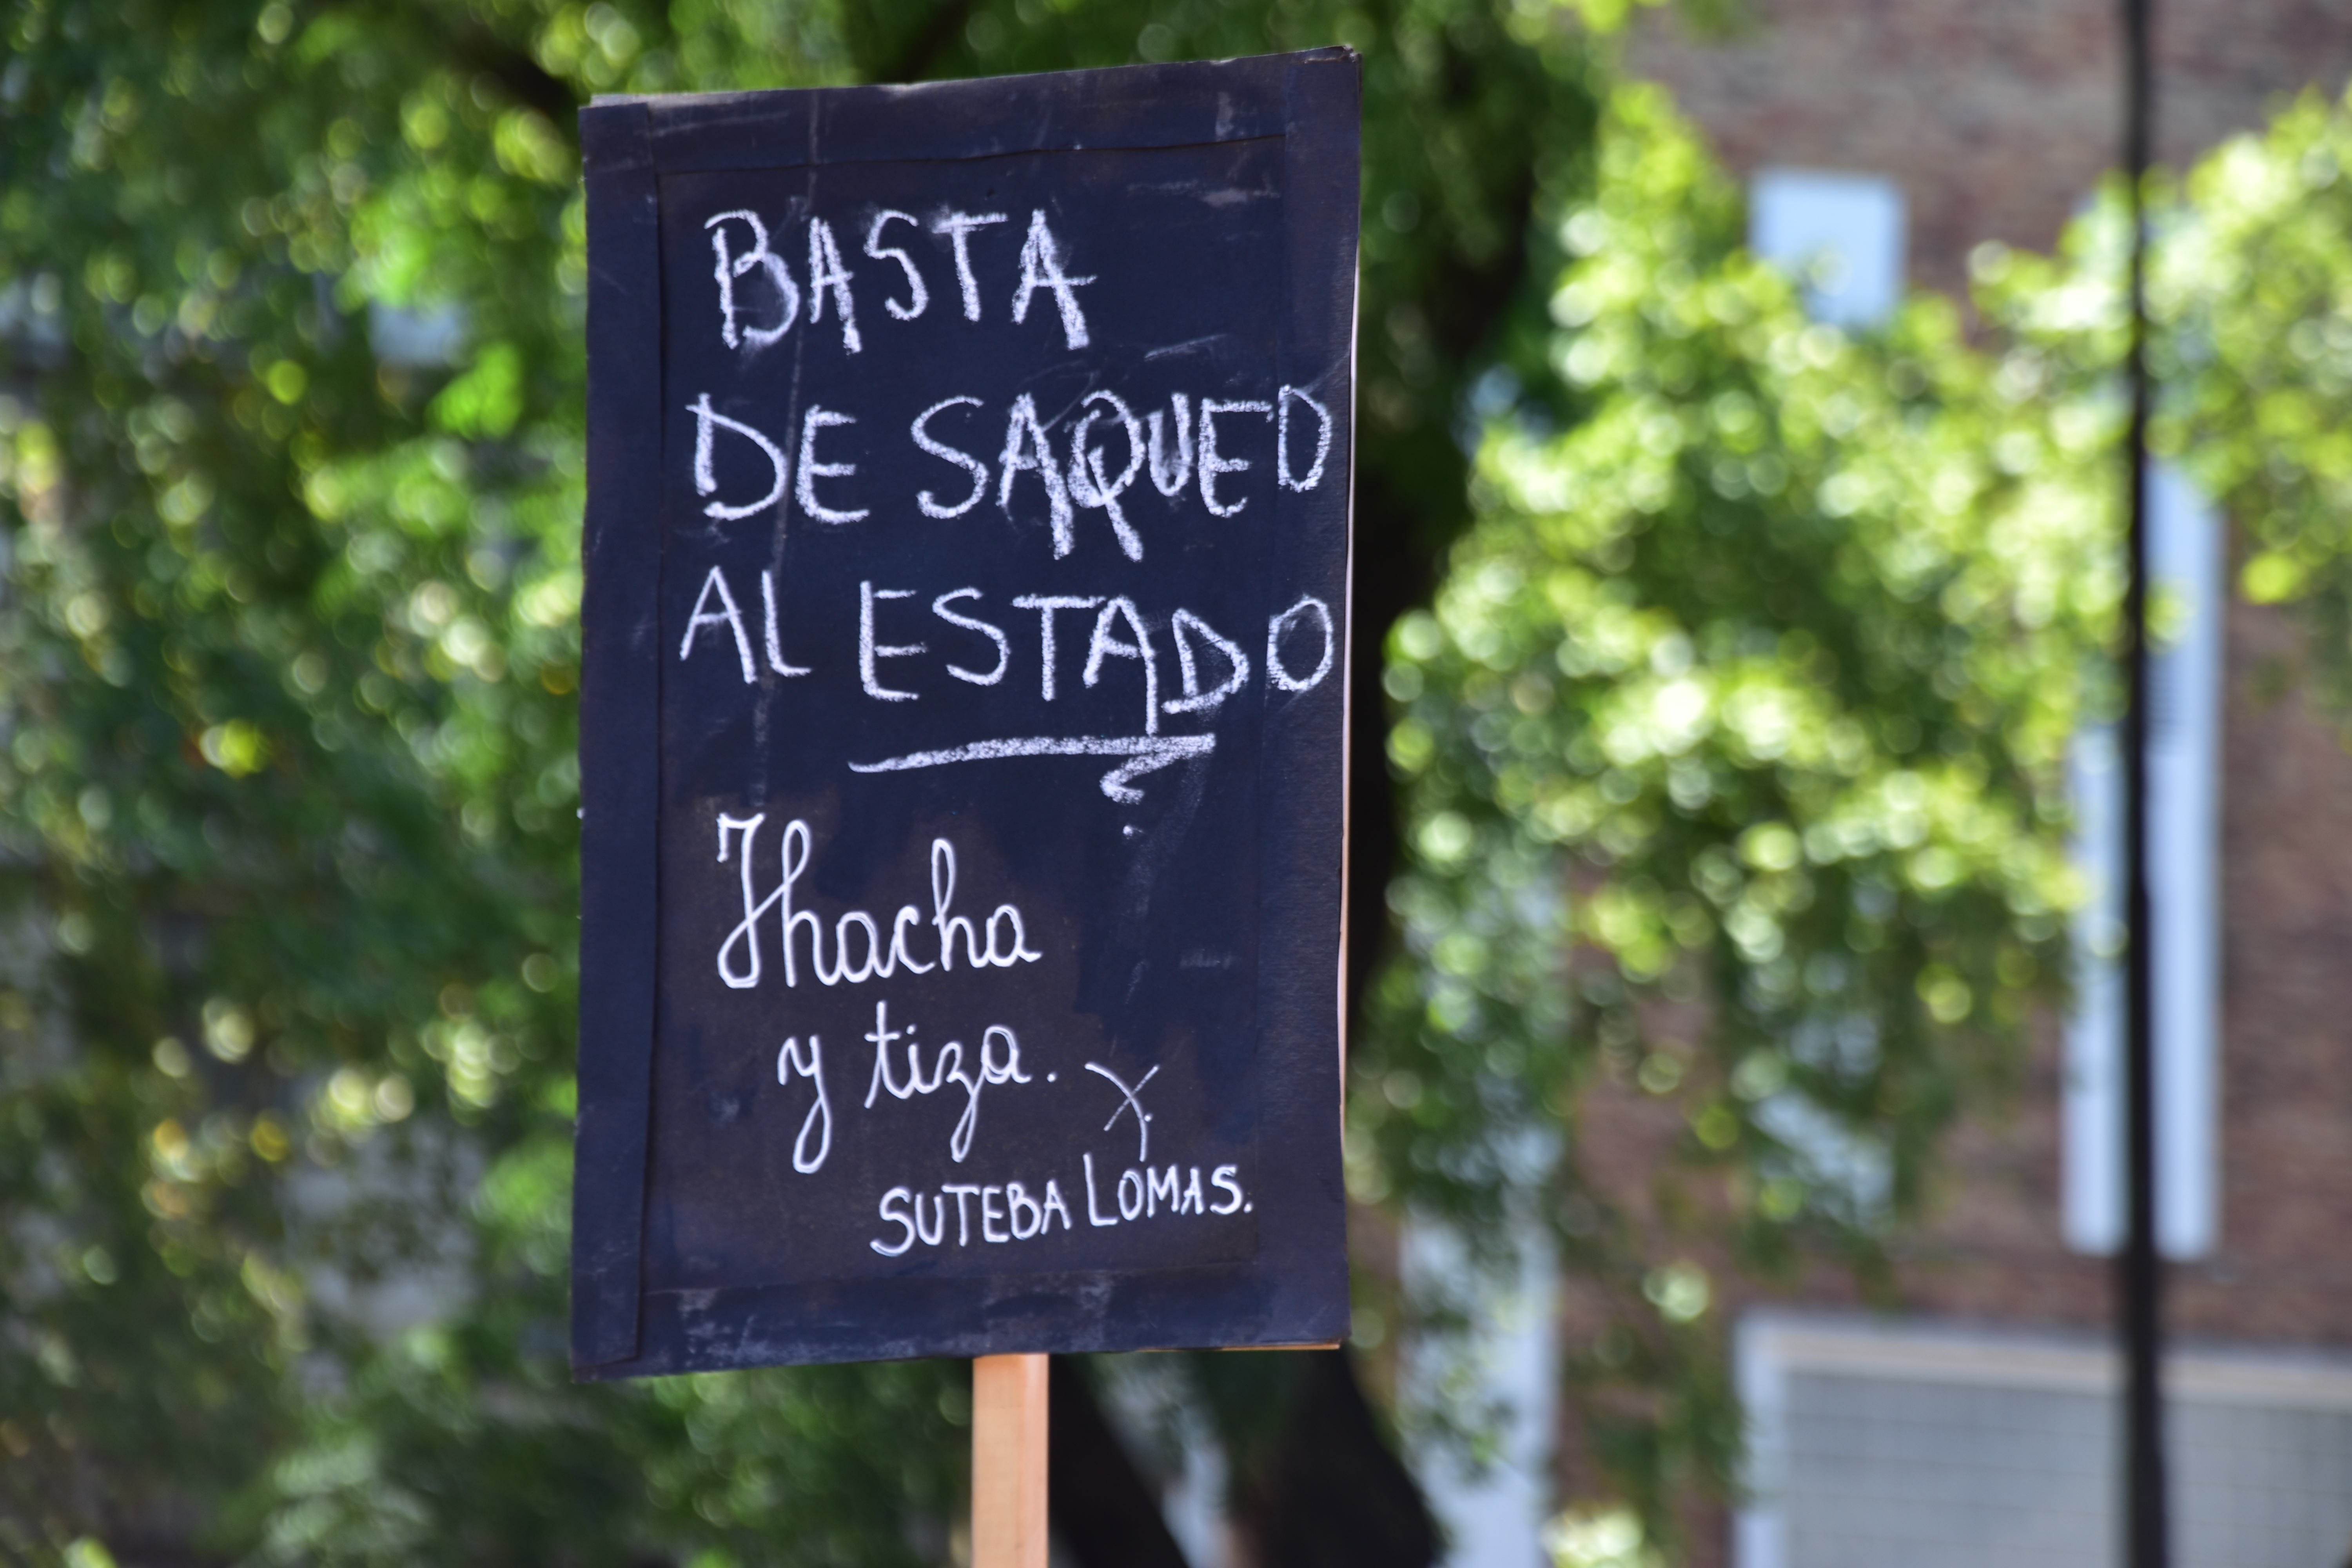 BASTA
DE SAQUEO
AL ESTADO
Hhacha
y tiza.
SUTEBA LOMAS.